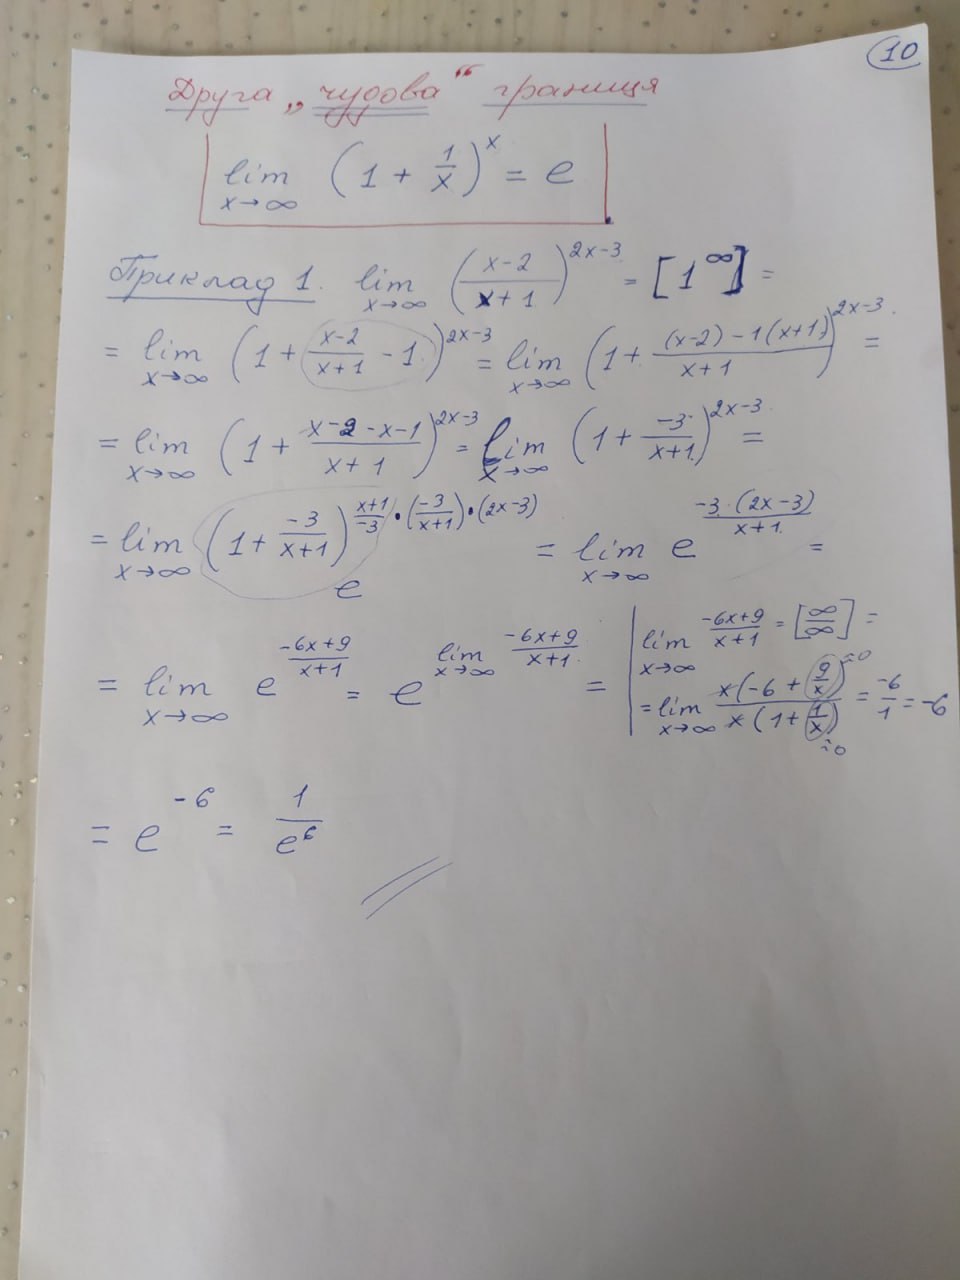 10
Друга „чудова“ границя
lim x→∞ (1 + 1/x)^x = e
Приклад 1. lim x→∞ ((x-2)/(x+1))^(2x-3) = [1^∞] =
= lim x→∞ (1 + (x-2)/(x+1) - 1)^(2x-3) = lim x→∞ (1 + ((x-2) - 1(x+1))/(x+1))^(2x-3) =
= lim x→∞ (1 + (x-2-x-1)/(x+1))^(2x-3) = lim x→∞ (1 + (-3)/(x+1))^(2x-3) =
= lim x→∞ (1 + (-3)/(x+1))^((x+1)/(-3) · (-3/(x+1)) · (2x-3)) = lim x→∞ e^(-3·(2x-3)/(x+1)) =
e
= lim x→∞ e^((-6x+9)/(x+1)) = e^(lim x→∞ (-6x+9)/(x+1)) = | lim x→∞ (-6x+9)/(x+1) = [∞/∞] =
= lim x→∞ x(-6 + 9/x)/x(1 + 1/x) = -6/1 = -6
=0
=0
= e^-6 = 1/e^6